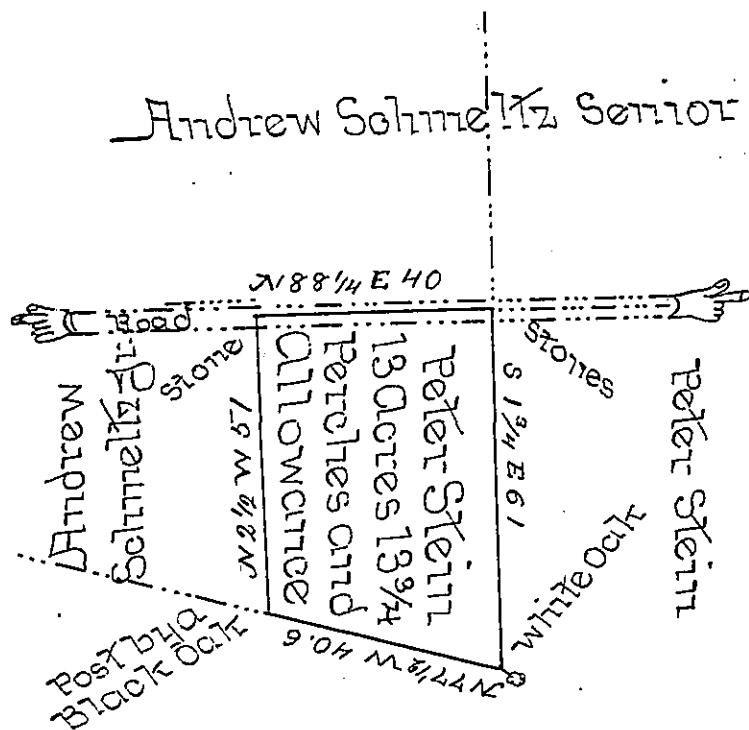 Andrew Schmeltz Senior
N 88 1/4 E 40
Road
Stone
Stones
Andrew
Schmeltz Jr.
N 2 3/4 W 51
Peter Stein
13 Acres 13 3/4
Perches and
Allowance
S 1 3/4 E 61
Peter Stein
White Oak
N 77 1/2 W 40.6
Post by a
Black Oak